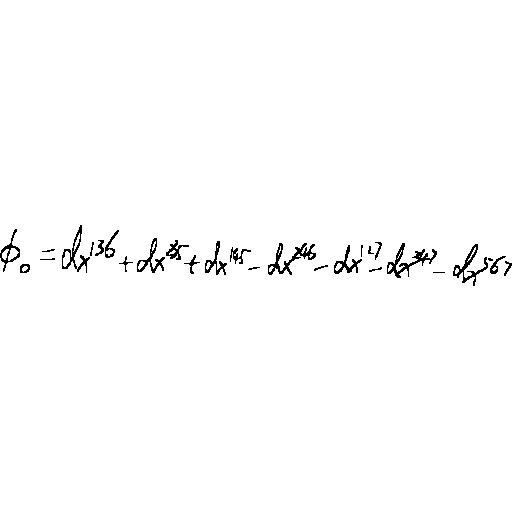 ϕ₀ = dx¹³⁶ + dx²³⁵ + dx¹⁴⁵ − dx²⁴⁶ − dx¹²⁷ − dx³⁴⁷ − dx⁵⁶⁷